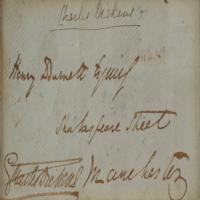 Charles Dickens
Henry Burnett Esquire
Shakspeare Street
Charles Dickens Manchester